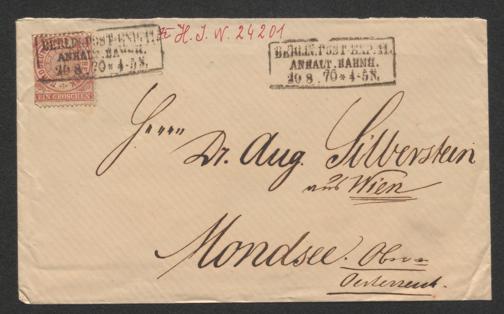 H. I. N. 24201
BERLIN. POST-EXP. 11.
ANHALT. BAHNH.
20 8. 70 * 4-5 N.
BERLIN. POST-EXP. 11.
ANHALT. BAHNH.
20 8. 70 * 4-5 N.
EIN GROSCHEN
Herrn
Dr. Aug. Silberstein
aus Wien
Mondsee. Ober-
Oesterreich.